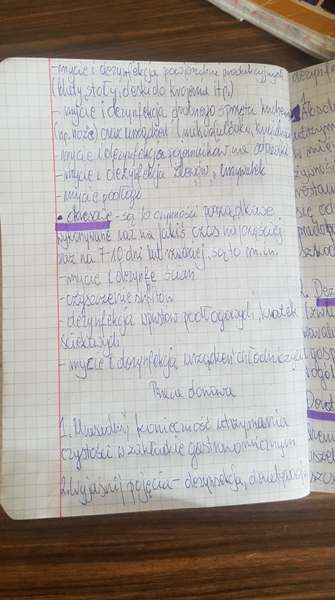 - mycie i dezynfekcja powierzchni produkcyjnych
(blaty, stoły, deski do krojenia itp.)
- mycie i dezynfekcja drobnego sprzętu kuchen
(np. noże) oraz urządzeń (mikrofalówki, kuchenki
- mycie i dezynfekcja pojemników na odpadki
- mycie i dezynfekcja zlewów, umywalek
- mycie podłogi
• okresowe - są to czynności porządkowe
wykonywane raz na jakiś czas najczęściej
raz na 7-10 dni lub rzadziej, są to m.in.
- mycie i dezynfe ścian
- czyszczenie sufitów
- dezynfekcja wpustów podłogowych, kratek
ściekowych
- mycie i dezynfekcja urządzeń chłodniczych
Praca domowa
1. Uzasadnij konieczność utrzymania
czystości w zakładzie gastronomicznym
2. Wyjaśnij pojęcia - dezynsekcja, deratyzacja